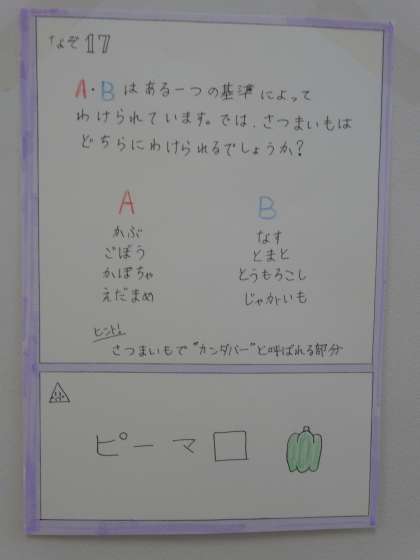 なぞ17
A・Bはある一つの基準によって
わけられています。では、さつまいもは
どちらにわけられるでしょうか?
A
B
かぶ
ごぼう
かぼちゃ
えだまめ
なす
とまと
とうもろこし
じゃがいも
ヒント
さつまいもで"カンダバー"と呼ばれる部分
ピーマ□